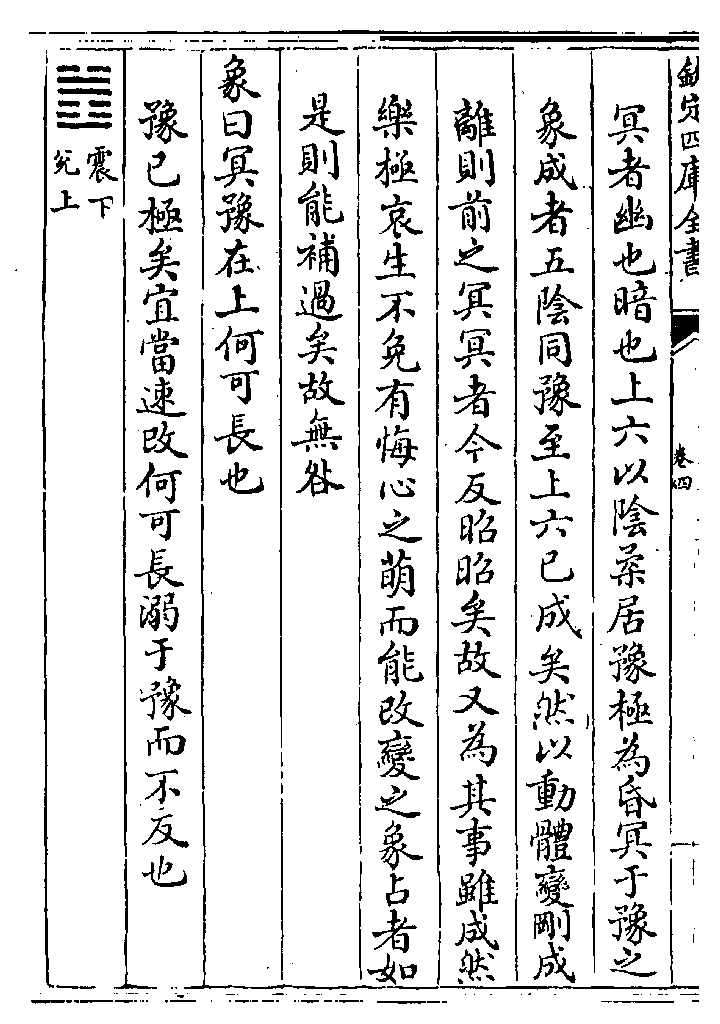 欽定四庫全書
卷四
冥者幽也暗也上六以陰柔居豫極為昏冥于豫之
象成者五陰同豫至上六已成矣然以動體變剛成
離則前之冥冥者今反昭昭矣故又為其事雖成然
樂極哀生不免有悔心之萌而能改變之象占者如
是則能補過矣故無咎
象曰冥豫在上何可長也
豫已極矣宜當速改何可長溺于豫而不反也
震下
兌上